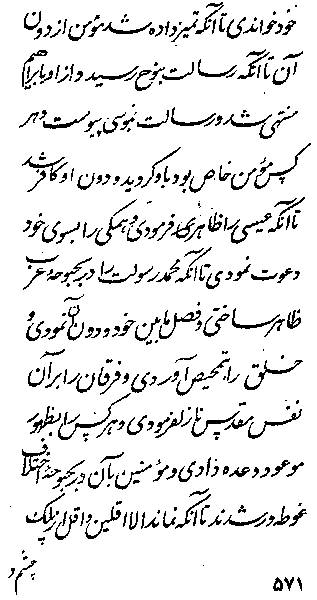 خود خواندی تا آنکه تمیز داده شد مؤمن از دون
آن تا آنکه رسالت بنوح رسید و از او بابراهیم
منتهی شد و رسالت بموسی پیوست و هر
کس مؤمن خاص بود باو کروید و دون او کافر شد
تا آنکه عیسی را ظاهر فرمودی و همکی را بسوی خود
دعوت نمودی تا آنکه محمد رسولت را در بحبوحهٔ عرب
ظاهر ساختی و فصل مابین خود و دون آن نمودی و
خلق را تمحیص آوردی و فرقان را بر آن
نفس مقدس نازل فرمودی و هر کس را بظهور
موعود وعده دادی و مؤمنین بآن در بحبوحهٔ اختلاف
غوطه ور شدند تا آنکه نماند الا اقلین و اقل از یک
چشم و
۵۷۱